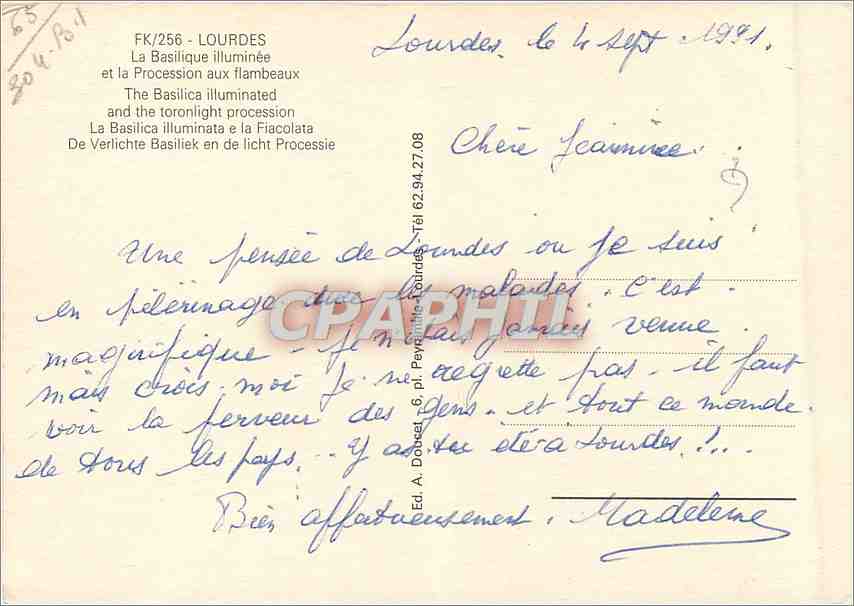 65
804-B01
FK/256 - LOURDES
La Basilique illuminée
et la Procession aux flambeaux
The Basilica illuminated
and the toronlight procession
La Basilica illuminata e la Fiacolata
De Verlichte Basiliek en de licht Processie
Lourdes. le 4 sept 1991.
Chère Jeannine.
Une pensée de Lourdes ou je suis
en pélérinage avec les malades. c'est
magnifique - je n'étais jamais venue.
mais crois-moi je ne regrette pas - il faut
voir la ferveur des gens. et tout ce monde.
de tous les pays... Y as-tu été a Lourdes.!...
Bien affectueusement. Madeleine
Ed. A. Doucet - 6, pl. Peyramale-Lourdes - Tél 62.94.27.08
CPAPHIL